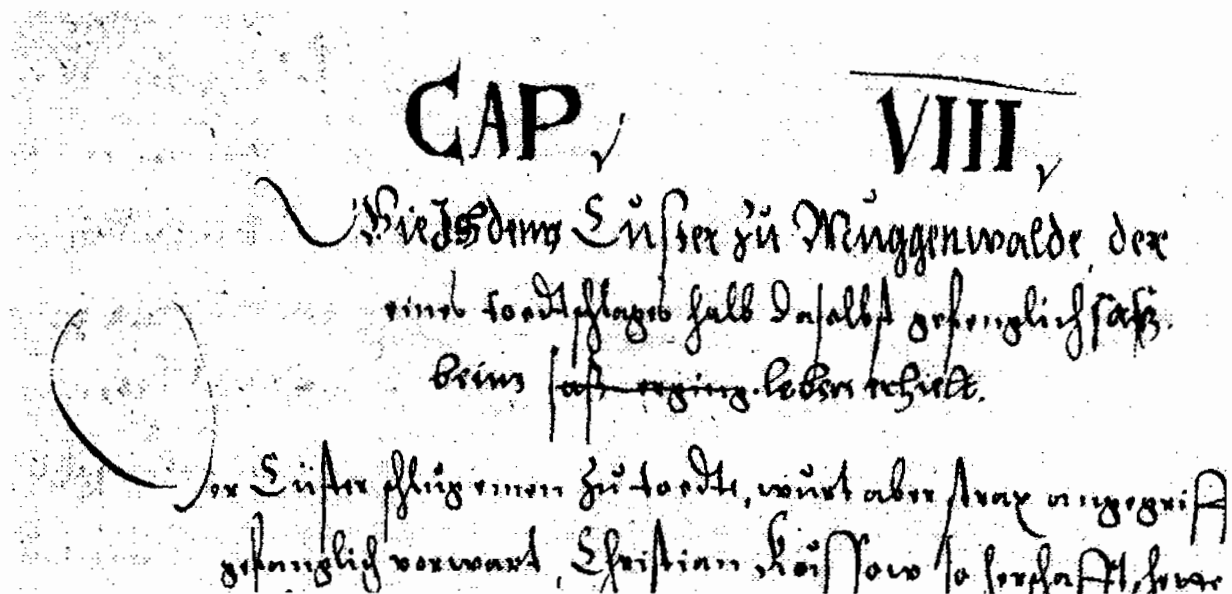 CAP VIII
Wie Js dem Cüster zu Müggenwalde, der
eines toedtschlages halb daselbst gefenglich saß.
beim saß erging. leben erhielt.
er Cüster schlug einen zu toedte, wurt aber strax angegriff
gefanglich vorwart, Christian Küssow so herschafft, hette